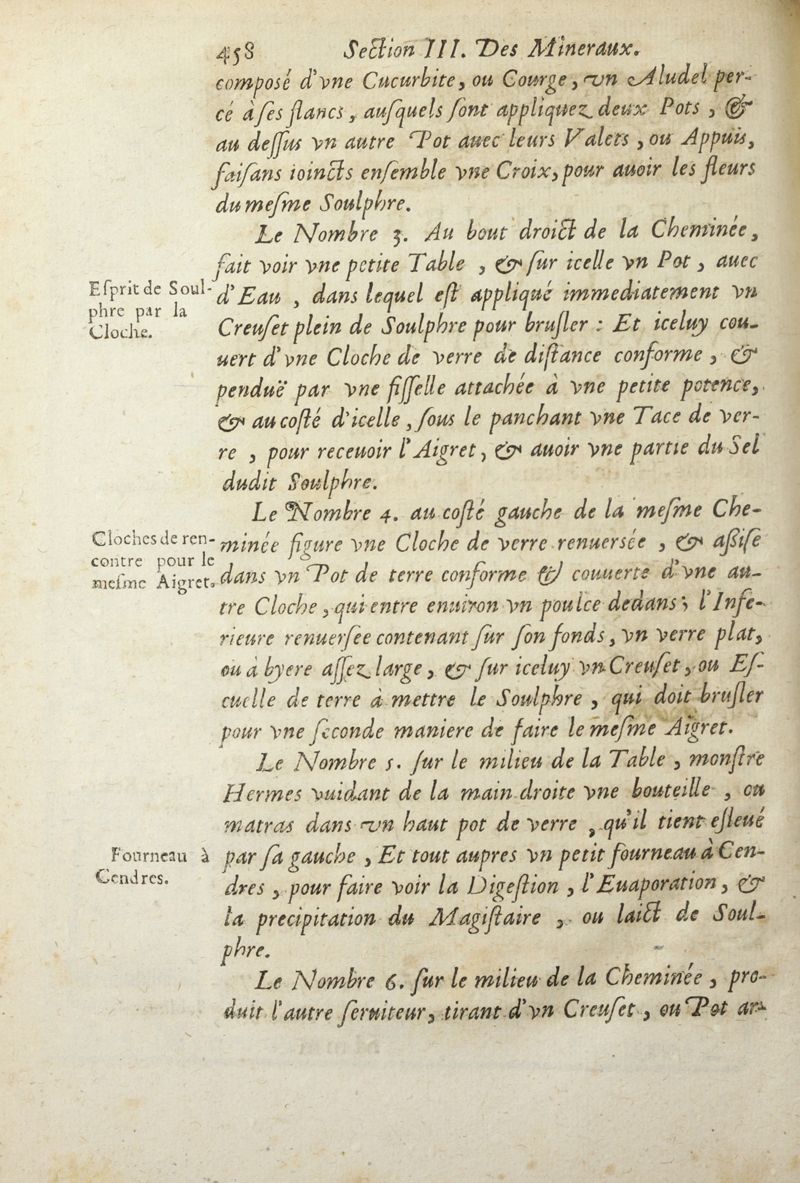 458 Section III. Des Mineraux.
composé d'vne Cucurbite, ou Courge, vn Aludel per-
cé à ſes flancs, auſquels ſont appliquez deux Pots, &
au deſſus vn autre Pot auec leurs Valets, ou Appuis,
faiſans ioincts enſemble vne Croix, pour auoir les fleurs
du meſme Soulphre.
Le Nombre 3. Au bout droict de la Cheminée,
fait voir vne petite Table, & ſur icelle vn Pot, auec
Eſprit de Soul-
phre par la
Cloche.
d'Eau, dans lequel eſt appliqué immediatement vn
Creuſet plein de Soulphre pour bruſler : Et iceluy cou-
uert d'vne Cloche de verre de diſtance conforme, &
penduë par vne fiſſelle attachée à vne petite potence,
& au coſté d'icelle, ſous le panchant vne Tace de ver-
re, pour receuoir l'Aigret, & auoir vne partie du Sel
dudit Soulphre.
Le Nombre 4. au coſté gauche de la meſme Che-
Cloches de ren-
contre pour le
meſme Aigret.
minée figure vne Cloche de verre renuersée, & aſſiſe
dans vn Pot de terre conforme & couuerte d'vne au-
tre Cloche, qui entre enuiron vn poulce dedans ; l'Infe-
rieure renuerſee contenant ſur ſon fonds, vn verre plat,
ou à byere aſſez large, & ſur iceluy vn Creuſet, ou Eſ-
cuelle de terre à mettre le Soulphre, qui doit bruſler
pour vne ſeconde maniere de faire le meſme Aigret.
Le Nombre 5. ſur le milieu de la Table, monſtre
Hermes vuidant de la main droite vne bouteille, ou
matras dans vn haut pot de verre, qu'il tient eſleué
Fourneau à
Cendres.
par ſa gauche, Et tout aupres vn petit fourneau à Cen-
dres, pour faire voir la Digeſtion, l'Euaporation, &
la precipitation du Magiſtaire, ou laict de Soul-
phre.
Le Nombre 6. ſur le milieu de la Cheminée, pro-
duit l'autre ſeruiteur, tirant d'vn Creuſet, ou Pot ar-